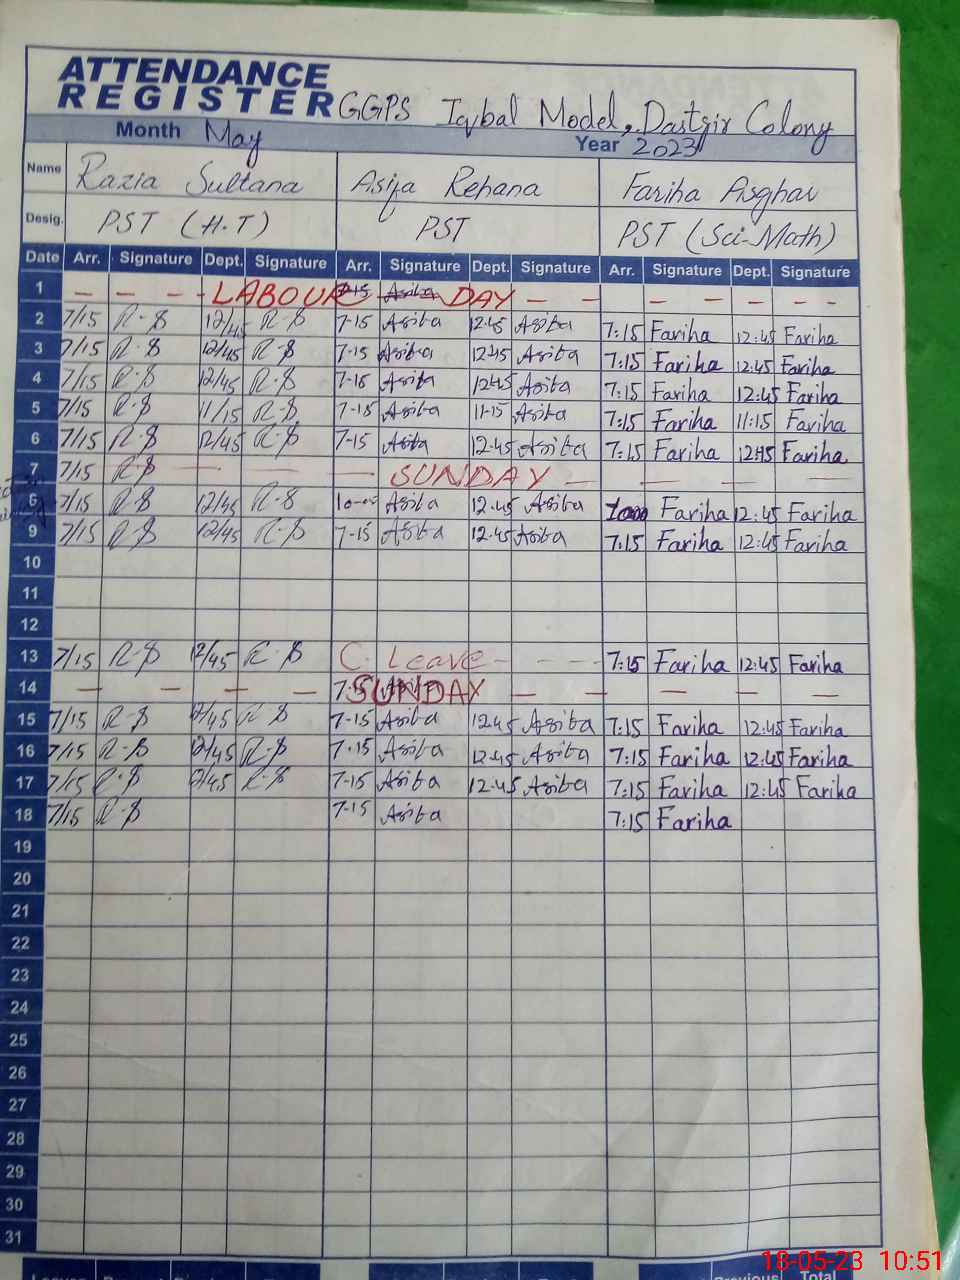 ATTENDANCE
REGISTER GGPS Iqbal Model, Dastgir Colony
Month May Year 2023
Name Razia Sultana Asifa Rehana Fariha Asghar
Desig. PST (H.T) PST PST (Sci-Math)
Date Arr. Signature Dept. Signature Arr. Signature Dept. Signature Arr. Signature Dept. Signature
1 - - - - LABOUR DAY - - - - - -
2 7/15 R-S 12/45 R-S 7-15 Asifa 12:45 Asifa 7:15 Fariha 12:45 Fariha
3 7/15 R-S 12/45 R-S 7-15 Asifa 12:45 Asifa 7:15 Fariha 12:45 Fariha
4 7/15 R-S 12/45 R-S 7-15 Asifa 12:45 Asifa 7:15 Fariha 12:45 Fariha
5 7/15 R-S 11/15 R-S 7-15 Asifa 11-15 Asifa 7:15 Fariha 11:15 Fariha
6 7/15 R-S 12/45 R-S 7-15 Asifa 12.45 Asifa 7:15 Fariha 12:45 Fariha
7 7/15 R-S - - - - SUNDAY - - - - -
8 7/15 R-S 12/45 R-S Asifa 12.45 Asifa Fariha 12:45 Fariha
9 7/15 R-S 12/45 R-S 7-15 Asifa 12.45 Asifa 7:15 Fariha 12:45 Fariha
10
11
12
13 7/15 R-S 12/45 R-S C. Leave - - - - 7:15 Fariha 12:45 Fariha
14 - - - - SUNDAY - - - - - -
15 7/15 R-S 12/45 R-S 7-15 Asifa 12.45 Asifa 7:15 Fariha 12:45 Fariha
16 7/15 R-S 12/45 R-S 7-15 Asifa 12.45 Asifa 7:15 Fariha 12:45 Fariha
17 7/15 R-S 12/45 R-S 7-15 Asifa 12.45 Asifa 7:15 Fariha 12:45 Fariha
18 7/15 R-S 7-15 Asifa 7:15 Fariha
19
20
21
22
23
24
25
26
27
28
29
30
31
18-05-23 10:51
Previous Total